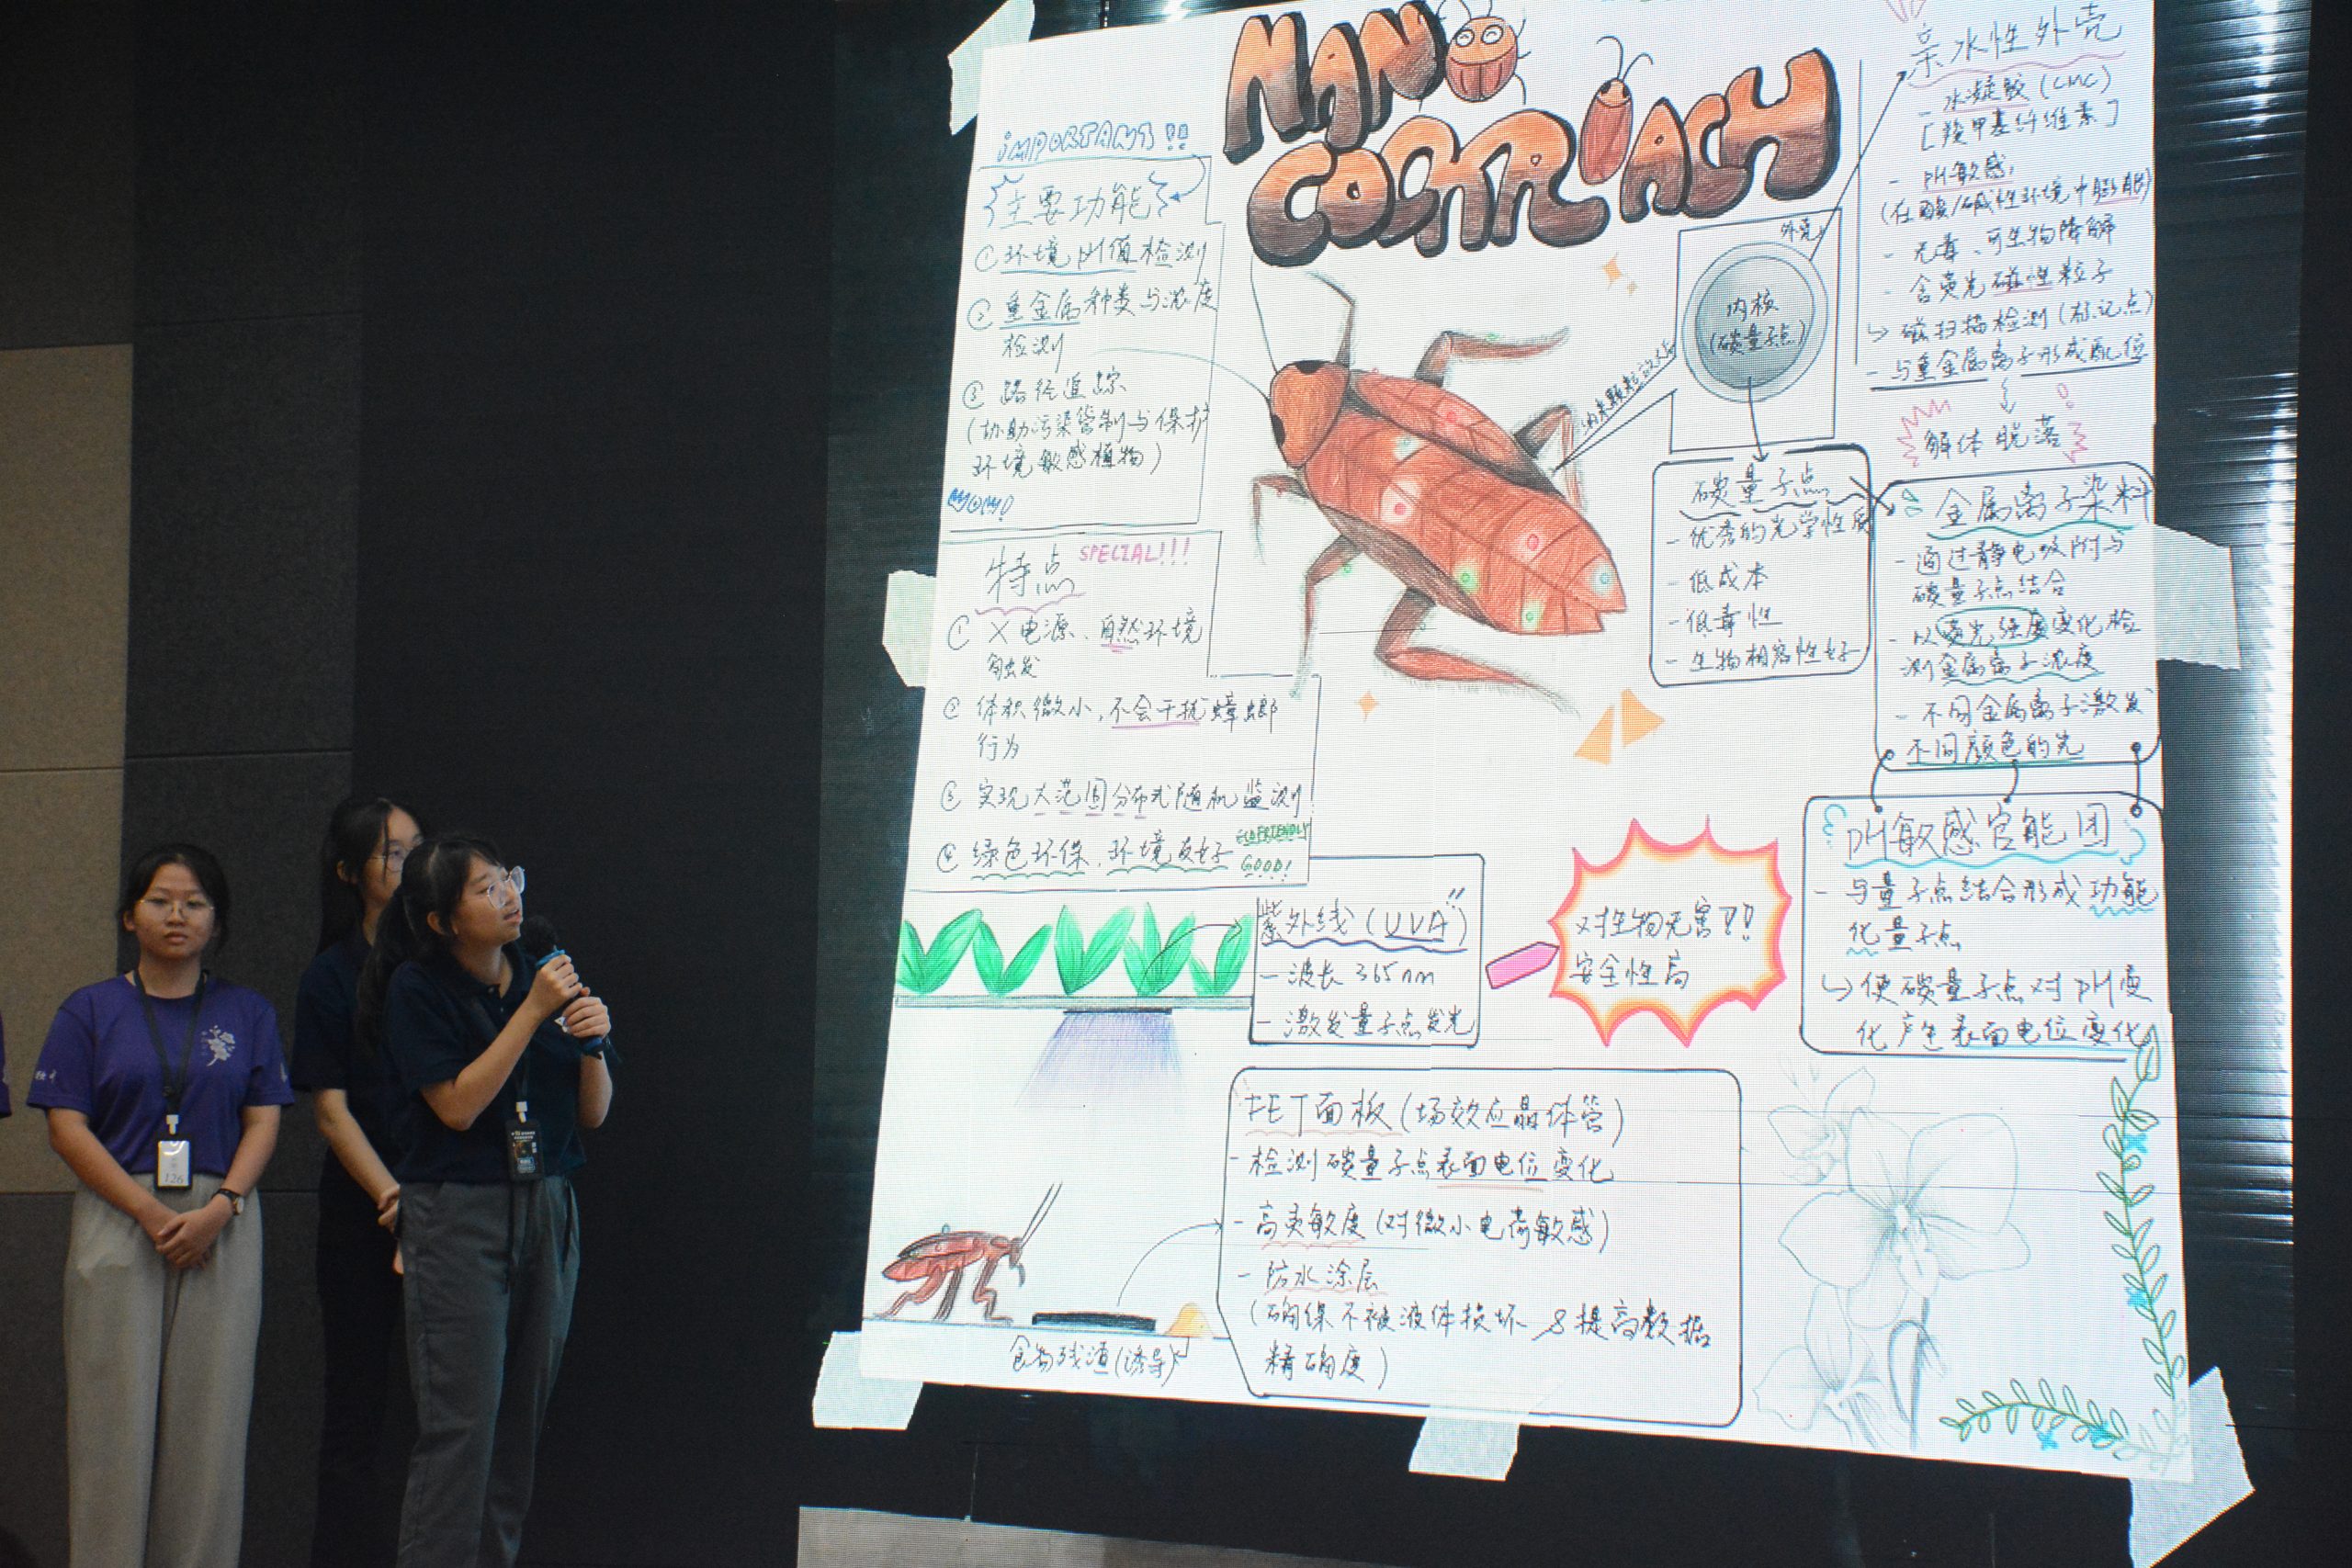 NANO
COCKROACH
iMPORTANT!!
主要功能
① 环境pH值检测
② 重金属种类与浓度
检测
③ 路径追踪
(协助污染管制与保护
环境敏感植物)
WOW!
特点 SPECIAL!!!
① X电源、自然环境
触发
② 体积微小,不会干扰蟑螂
行为
③ 实现大范围分布式随机监测
④ 绿色环保、环境友好
ECOFRIENDLY
GOOD!
外壳
内核
(碳量子点)
纳米颗粒放大后
亲水性外壳
- 水凝胶(CMC)
[羧甲基纤维素]
- pH敏感,
(在酸/碱性环境中膨胀)
- 无毒、可生物降解
- 含荧光磁性粒子
↳ 磁扫描检测(标记点)
- 与重金属离子形成配位
解体脱落
碳量子点
- 优秀的光学性质
- 低成本
- 低毒性
- 生物相容性好
金属离子染料
- 通过静电吸附与
碳量子点结合
- 以荧光强度变化检
测金属离子浓度
- 不同金属离子激发
不同颜色的光
pH敏感官能团
- 与量子点结合形成功能
化量子点
↳ 使碳量子点对pH变
化产生表面电位变化
紫外线(UVA)
- 波长 365nm
- 激发量子点发光
对生物无害!!
安全性高
FET面板(场效应晶体管)
- 检测碳量子点表面电位变化
- 高灵敏度(对微小电荷敏感)
- 防水涂层
(确保不被液体损坏 & 提高数据
精确度)
食物残渣(诱导)
126